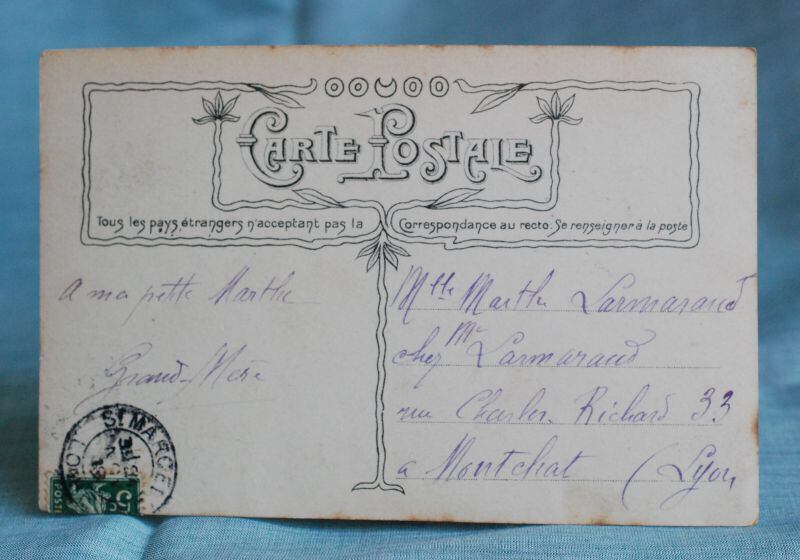 CARTE POSTALE
Tous les pays étrangers n'acceptant pas la Correspondance au recto: Se renseigner à la poste
A ma petite Marthe
Grand-Mère
Mlle Marthe Larmaraud
chez Mr Larmaraud
rue Charles Richard 33
a Montchat (Lyon)
ST MARCEL
5c
POST